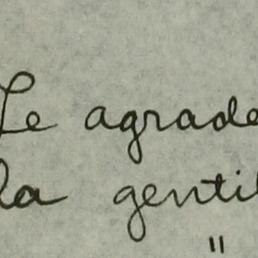 Le agrade
la genti
"